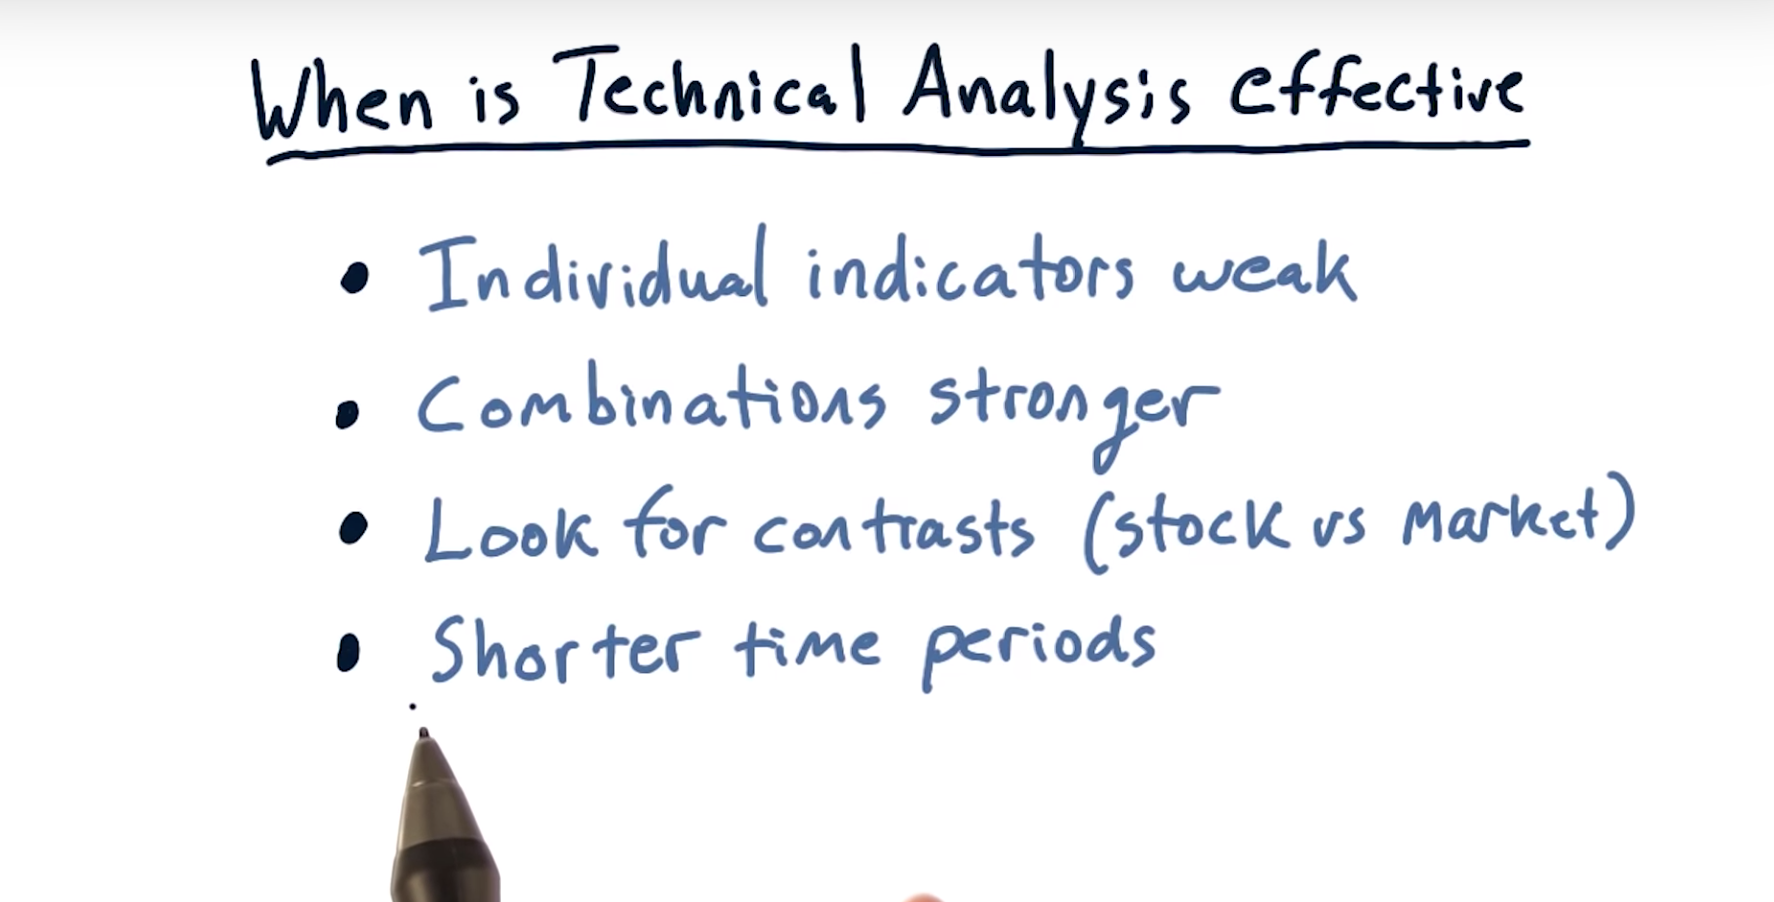 When is Technical Analysis effective
• Individual indicators weak
• Combinations stronger
• Look for contrasts (stock vs market)
• Shorter time periods